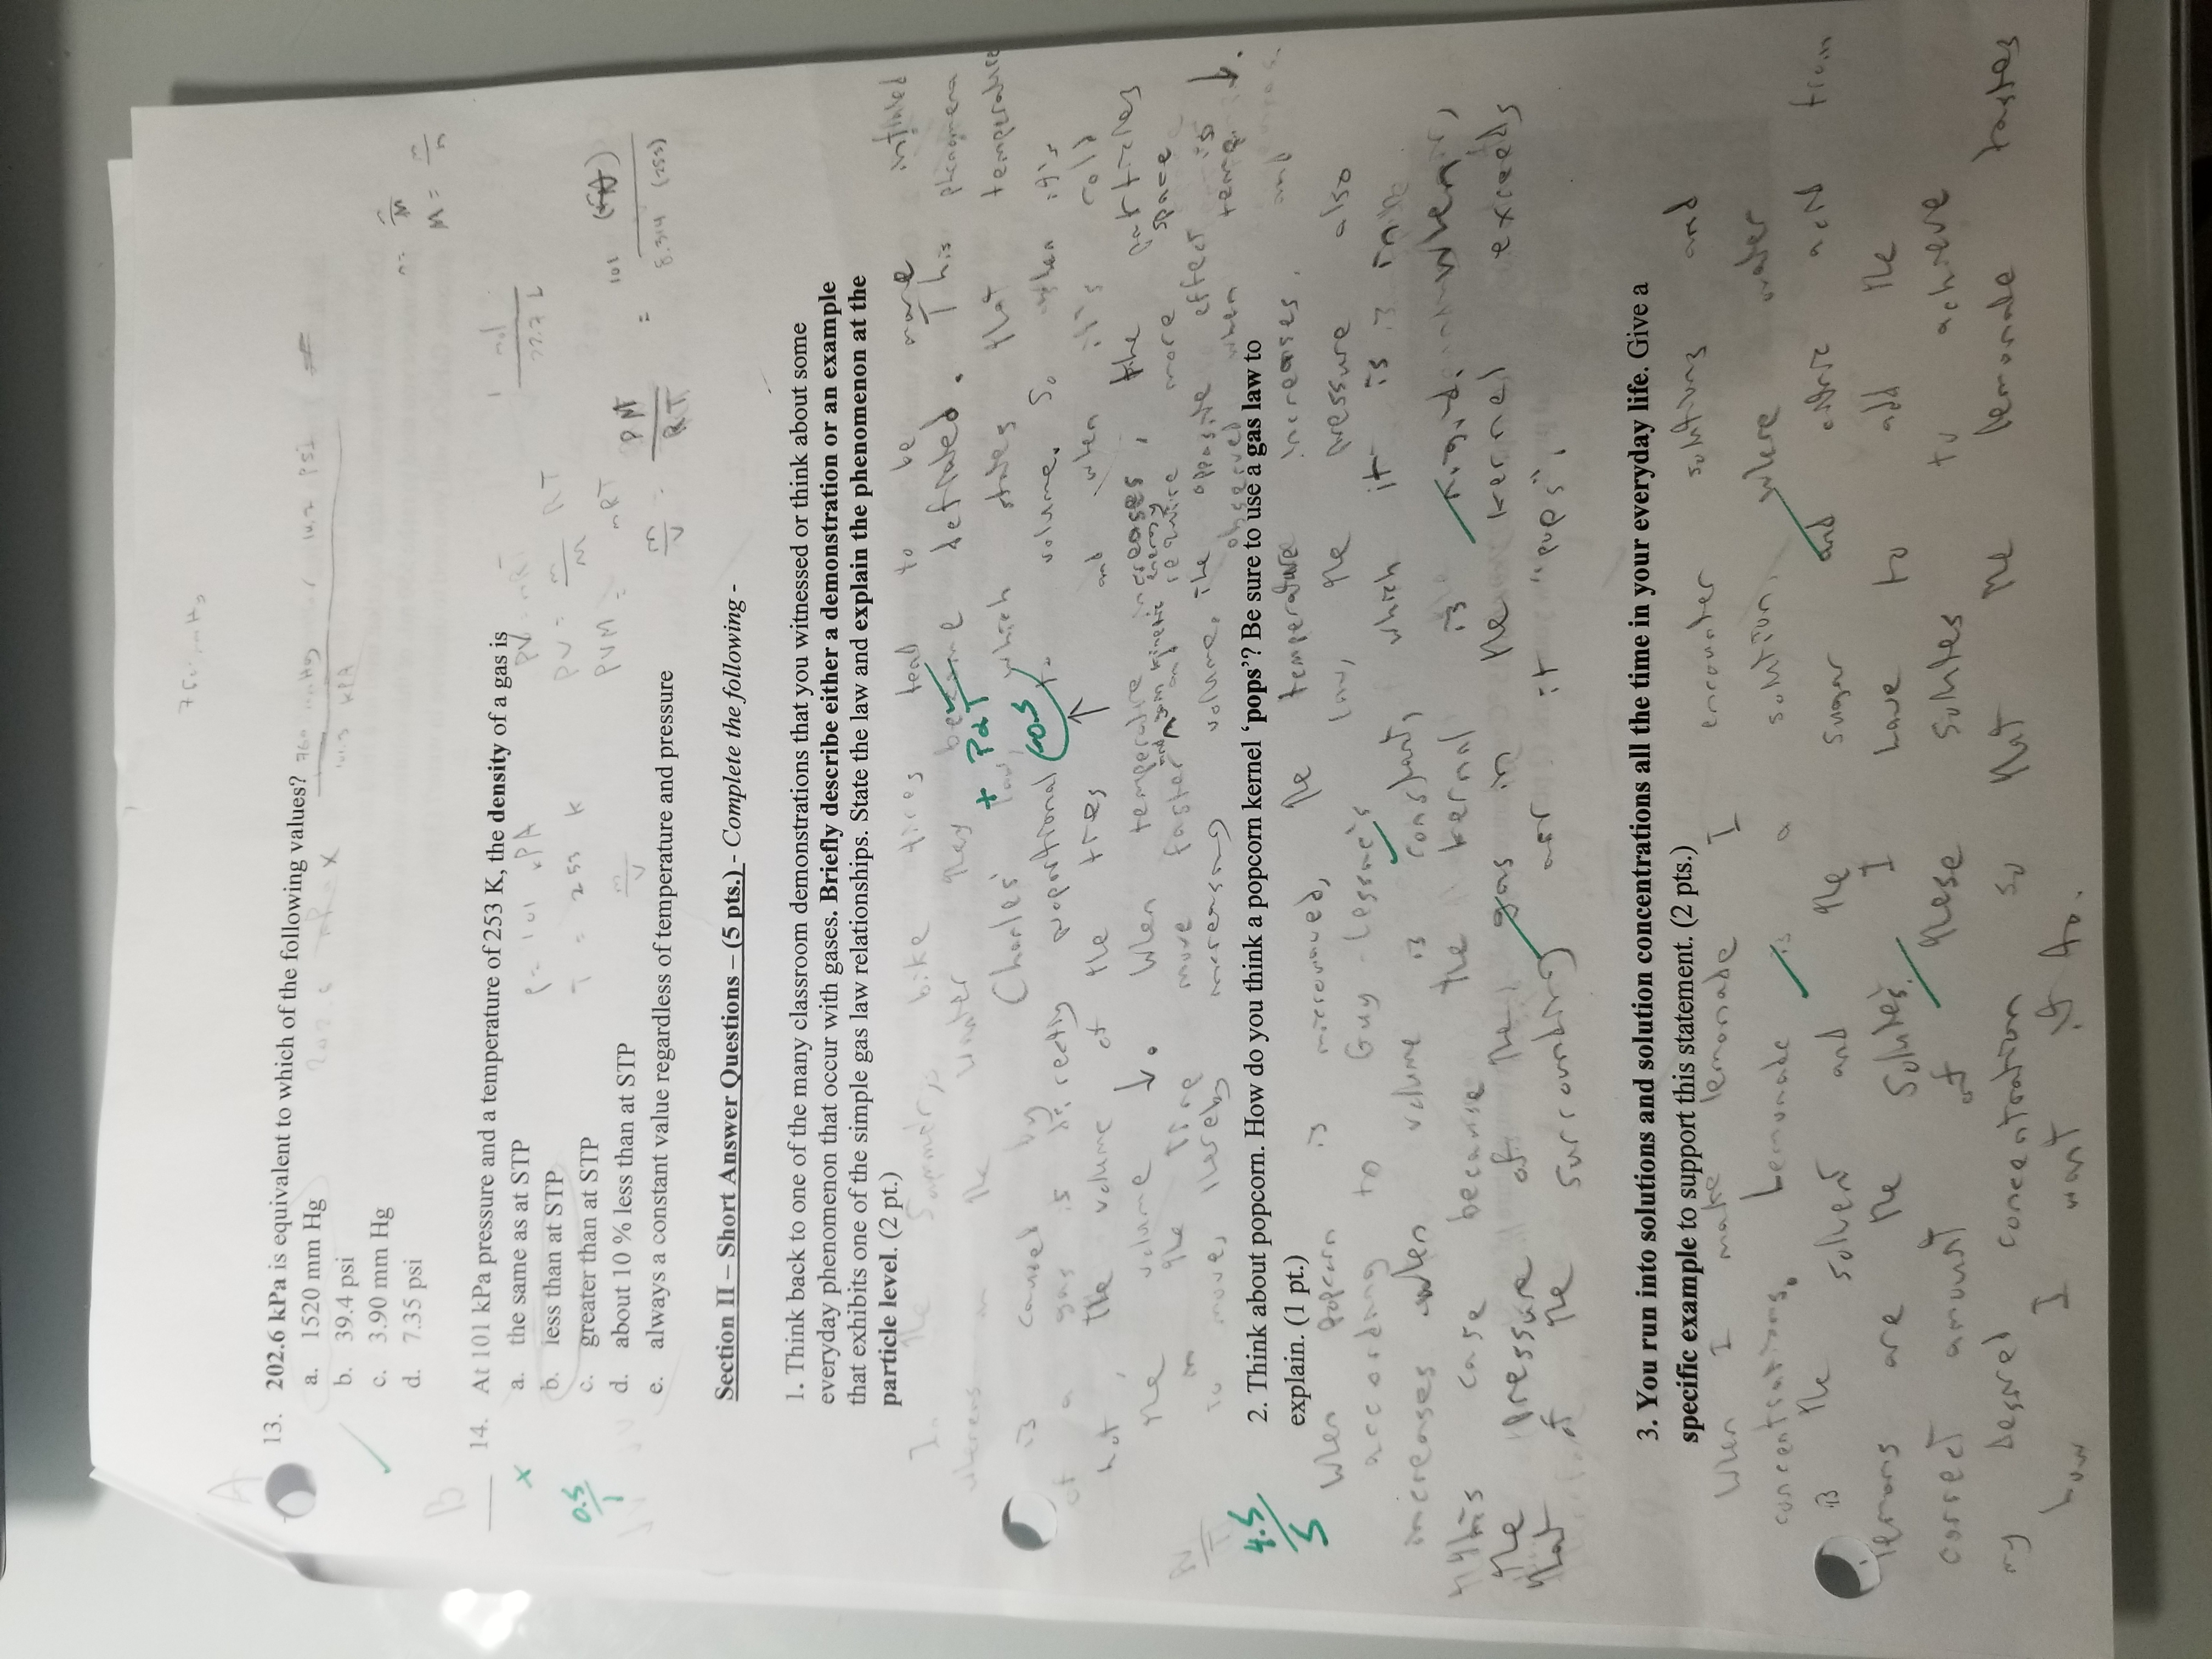 A
13. 202.6 kPa is equivalent to which of the following values?
a. 1520 mm Hg
b. 39.4 psi
c. 3.90 mm Hg
d. 7.35 psi
202.6 kPa x 760 mmHg / 14.7 PSI =
101.3 kPA
n = m/M
M = m/n
B
14. At 101 kPa pressure and a temperature of 253 K, the density of a gas is
a. the same as at STP
b. less than at STP
c. greater than at STP
d. about 10 % less than at STP
e. always a constant value regardless of temperature and pressure
0.5/1
P = 101 kPA
T = 253 K
m/V
PV = nRT
PV = m/M RT
PVM = mRT
m/V = PM/RT = 101 / 8.314 (253)
1 mol / 22.7 L
Section II – Short Answer Questions – (5 pts.) - Complete the following -
1. Think back to one of the many classroom demonstrations that you witnessed or think about some
everyday phenomenon that occur with gases. Briefly describe either a demonstration or an example
that exhibits one of the simple gas law relationships. State the law and explain the phenomenon at the
particle level. (2 pt.)
In the Summer, bike tires tend to be more inflated
whereas in the winter they become deflated. This phenomena
+ PαT
is caused by Charles' law, which states that temperature
of a gas is directly proportional to volume. So when it's
-0.5
hot, the volume of the tires ↑ and when it's cold
the volume ↓. When temperature increases, the particles
in the tire move faster ^ and require more space
and gain kinetic energy
to move, thereby increasing volume. The opposite effect is
observed when temp. ↓.
4.5/5
2. Think about popcorn. How do you think a popcorn kernel ‘pops’? Be sure to use a gas law to
explain. (1 pt.)
When popcorn is microwaved, the temperature increases, and
according to Guy-Lessac's law, the pressure also
increases when volume is constant, which it is in
this case because the kernal is rigid. When
the pressure of the gas in the kernel exceeds
that of the surrounding air it "pops".
3. You run into solutions and solution concentrations all the time in your everyday life. Give a
specific example to support this statement. (2 pts.)
When I make lemonade I encounter solutions and
concentrations. Lemonade is a solution, where water
is the solvent and the sugar and citric acid from
lemons are the solutes. I have to add the
correct amount of these solutes to achieve
my desired concentration so that the lemonade tastes
how I want it to.